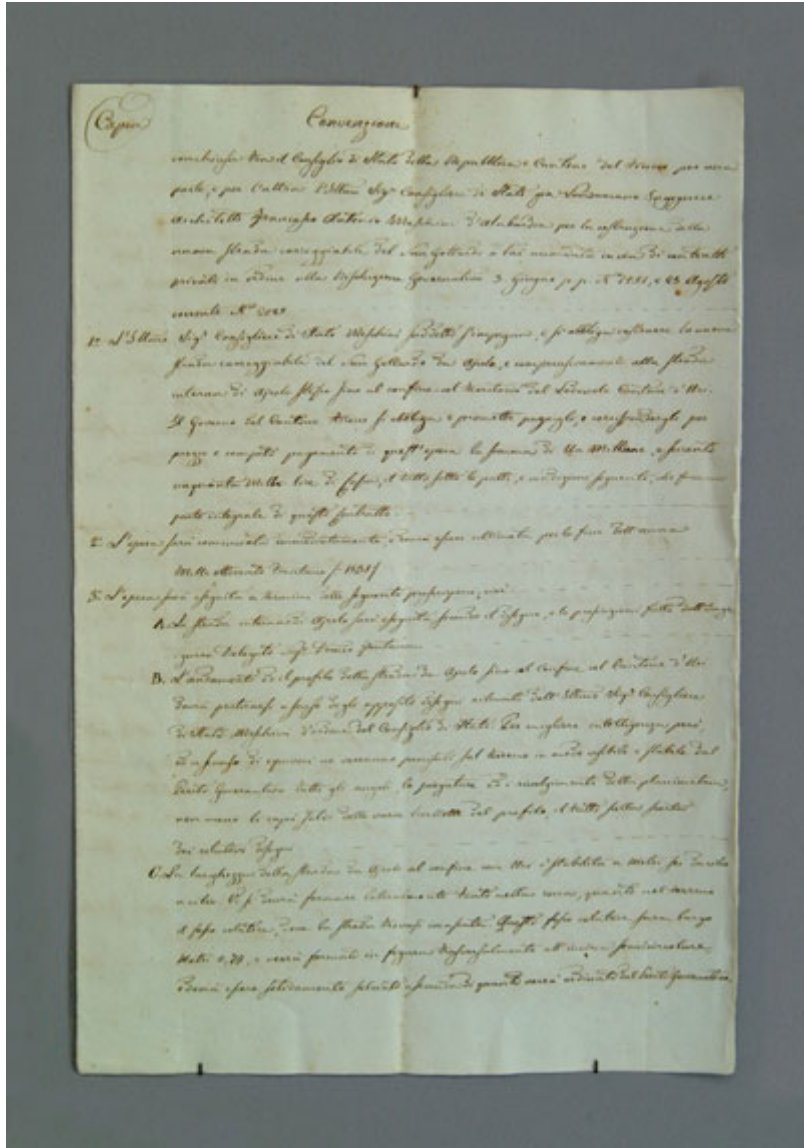 Copia
Convenzione
conchiusa tra il Consiglio di Stato della Repubblica e Cantone del Ticino per una
parte, e per l'altra l'Illmo Sigr Consigliere di Stato già Landamano Ingegnere
Architetto Francesco Antonio Meschini d'Alabardia per la costruzione della
nuova strada carreggiabile del San Gottardo a lui accordata in via di contratto
privato in ordine alla Risoluzione Governativa 3. Giugno p. p. N° e 23. Agosto
corrente N°
1° L'Illmo Sigr Consigliere di Stato Meschini suddetto s'impegna, e si obbliga costruere la nuova
strada carreggiabile del San Gottardo da Ajrolo, e comprensivamente alla strada
interna di Ajrolo stesso sino al confine col territorio del Lodevole Cantone d'Uri.
Il Governo del Cantone Ticino si obbliga e promette pagargli, e corrispondergli per
prezzo e compito pagamento di quest'opera la somma di Un Millione, e
cinquanta mille lire di, il tutto sotto li patti, e condizioni seguenti, che formano
parte integrale di questo contratto.
2° L'opera sarà cominciata immediatamente, e dovrà essere ultimata per la fine dell'anno
Mille ottocento trentuno (1831)
3° L'opera sarà eseguita a termine delle seguenti prescrizioni, cioè
A. La strada interna di Ajrolo sarà eseguita secondo il disegno, e le prescrizioni fatte dall'Inge-
gnere Delegato Sigr Rocco Fontana.
B. L'andamento ed il profilo della strada da Ajrolo sino al Confine col Cantone d'Uri
dovrà praticarsi a senso degli appositi disegni rilevati dall'Illmo Sigr Consigliere
di Stato Meschini d'ordine del Consiglio di Stato. Per migliore intelligenza però,
ed a scanso di opinioni ne verranno precisati sul terreno in modo visibile e stabile dal
Perito Governativo tutti gli angoli, le piegature ed i rivolgimenti della planimetria,
non meno
dei relativi disegni
C. La larghezza della strada da Ajrolo al confine con Uri è stabilita a Metri sei
Vi si dovrà formare lateralmente tanto nella roccia, quanto nel terreno
il fosso colatore, ove la strada trovasi incassata. Questo fosso colatore sarà largo
Metri 0,70, e verrà formato in figura
dovrà essere solidamente selciato a seconda di quanto verrà ordinato dal Perito Governativo.